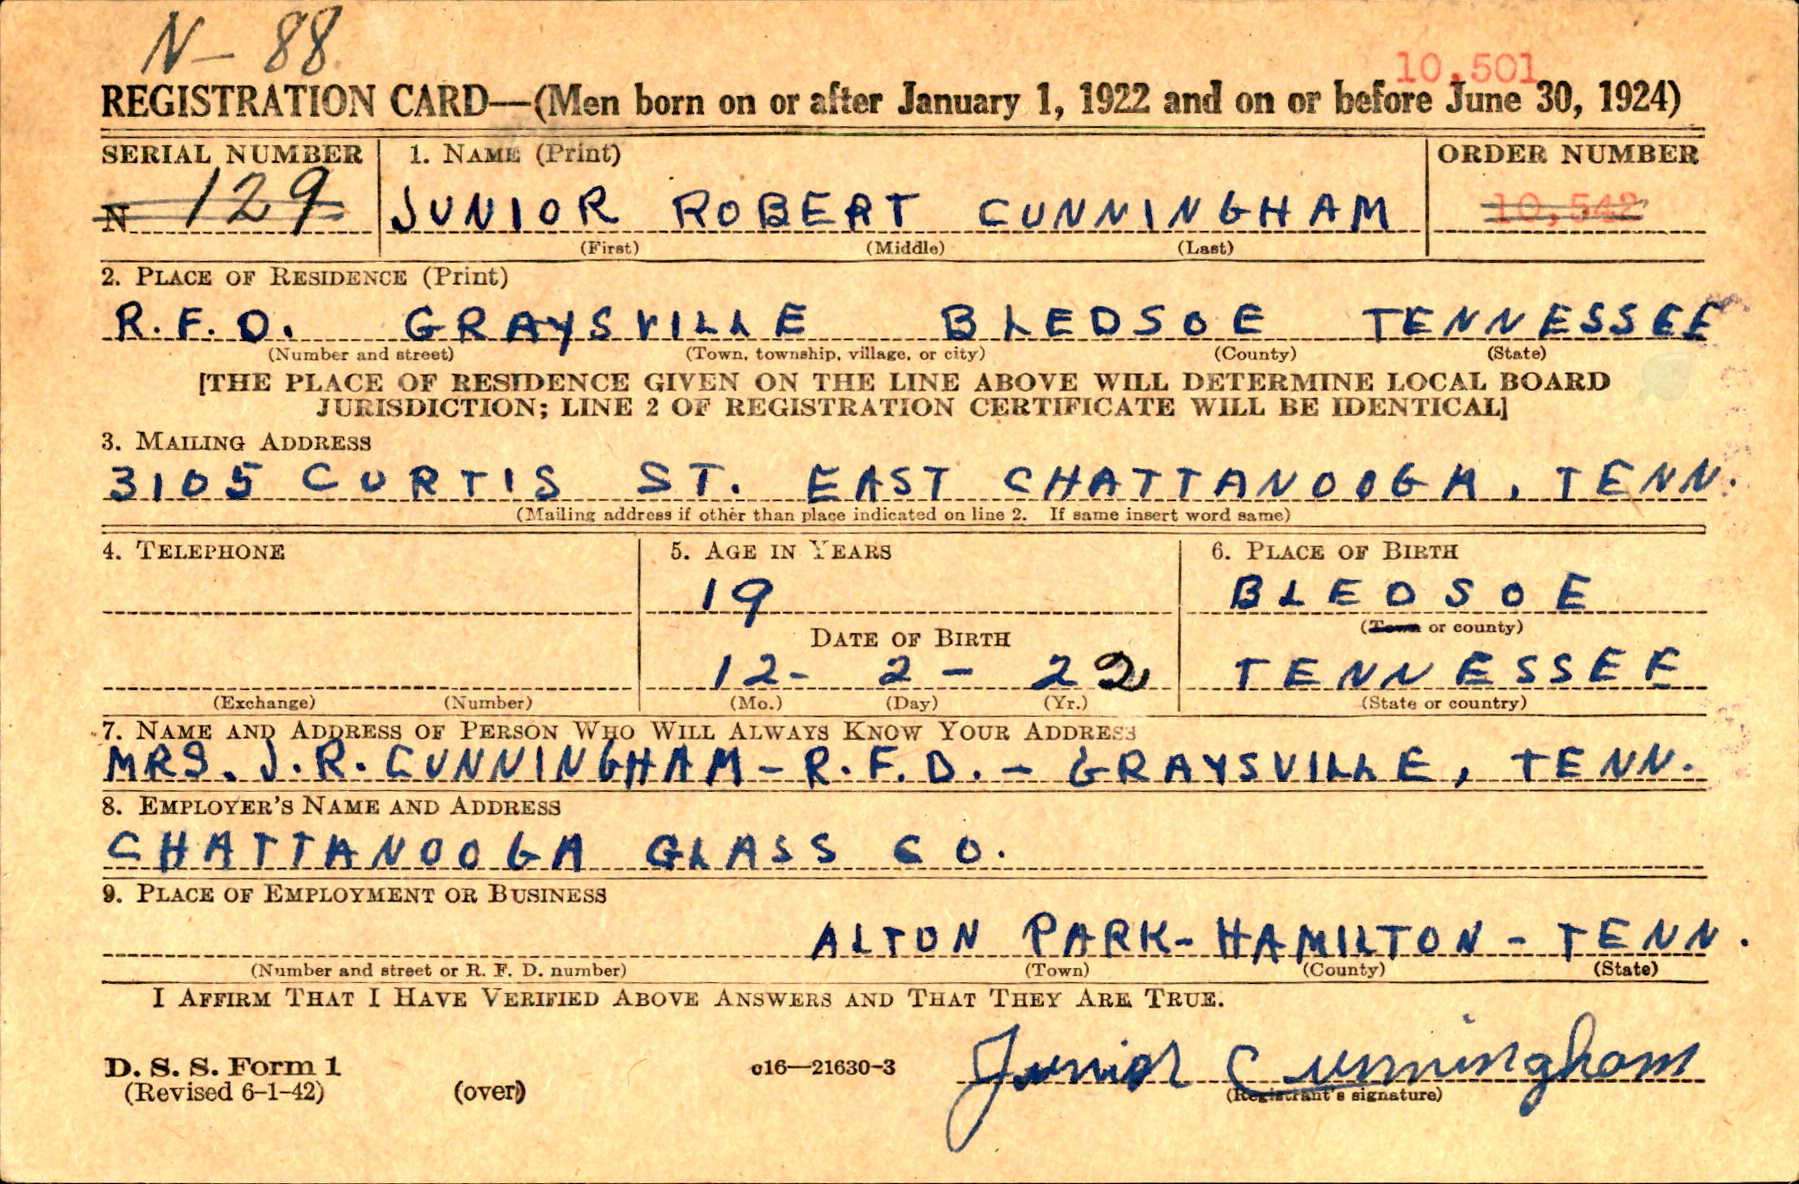 N- 88
10,501
REGISTRATION CARD—(Men born on or after January 1, 1922 and on or before June 30, 1924)
SERIAL NUMBER 1. NAME (Print) ORDER NUMBER
N 129 JUNIOR ROBERT CUNNINGHAM 10,542
(First) (Middle) (Last)
2. PLACE OF RESIDENCE (Print)
R.F.D. GRAYSVILLE BLEDSOE TENNESSEE
(Number and street) (Town, township, village, or city) (County) (State)
[THE PLACE OF RESIDENCE GIVEN ON THE LINE ABOVE WILL DETERMINE LOCAL BOARD
JURISDICTION; LINE 2 OF REGISTRATION CERTIFICATE WILL BE IDENTICAL]
3. MAILING ADDRESS
3105 CURTIS ST. EAST CHATTANOOGA, TENN.
(Mailing address if other than place indicated on line 2. If same insert word same)
4. TELEPHONE 5. AGE IN YEARS 6. PLACE OF BIRTH
19 BLEDSOE
DATE OF BIRTH (Town or county)
12- 2- 22 TENNESSEE
(Exchange) (Number) (Mo.) (Day) (Yr.) (State or country)
7. NAME AND ADDRESS OF PERSON WHO WILL ALWAYS KNOW YOUR ADDRESS
MRS. J.R. CUNNINGHAM - R.F.D. - GRAYSVILLE, TENN.
8. EMPLOYER'S NAME AND ADDRESS
CHATTANOOGA GLASS CO.
9. PLACE OF EMPLOYMENT OR BUSINESS
ALTON PARK- HAMILTON - TENN.
(Number and street or R. F. D. number) (Town) (County) (State)
I AFFIRM THAT I HAVE VERIFIED ABOVE ANSWERS AND THAT THEY ARE TRUE.
D. S. S. Form 1 c16—21630-3 Junior Cunningham
(Revised 6-1-42) (over) (Registrant's signature)